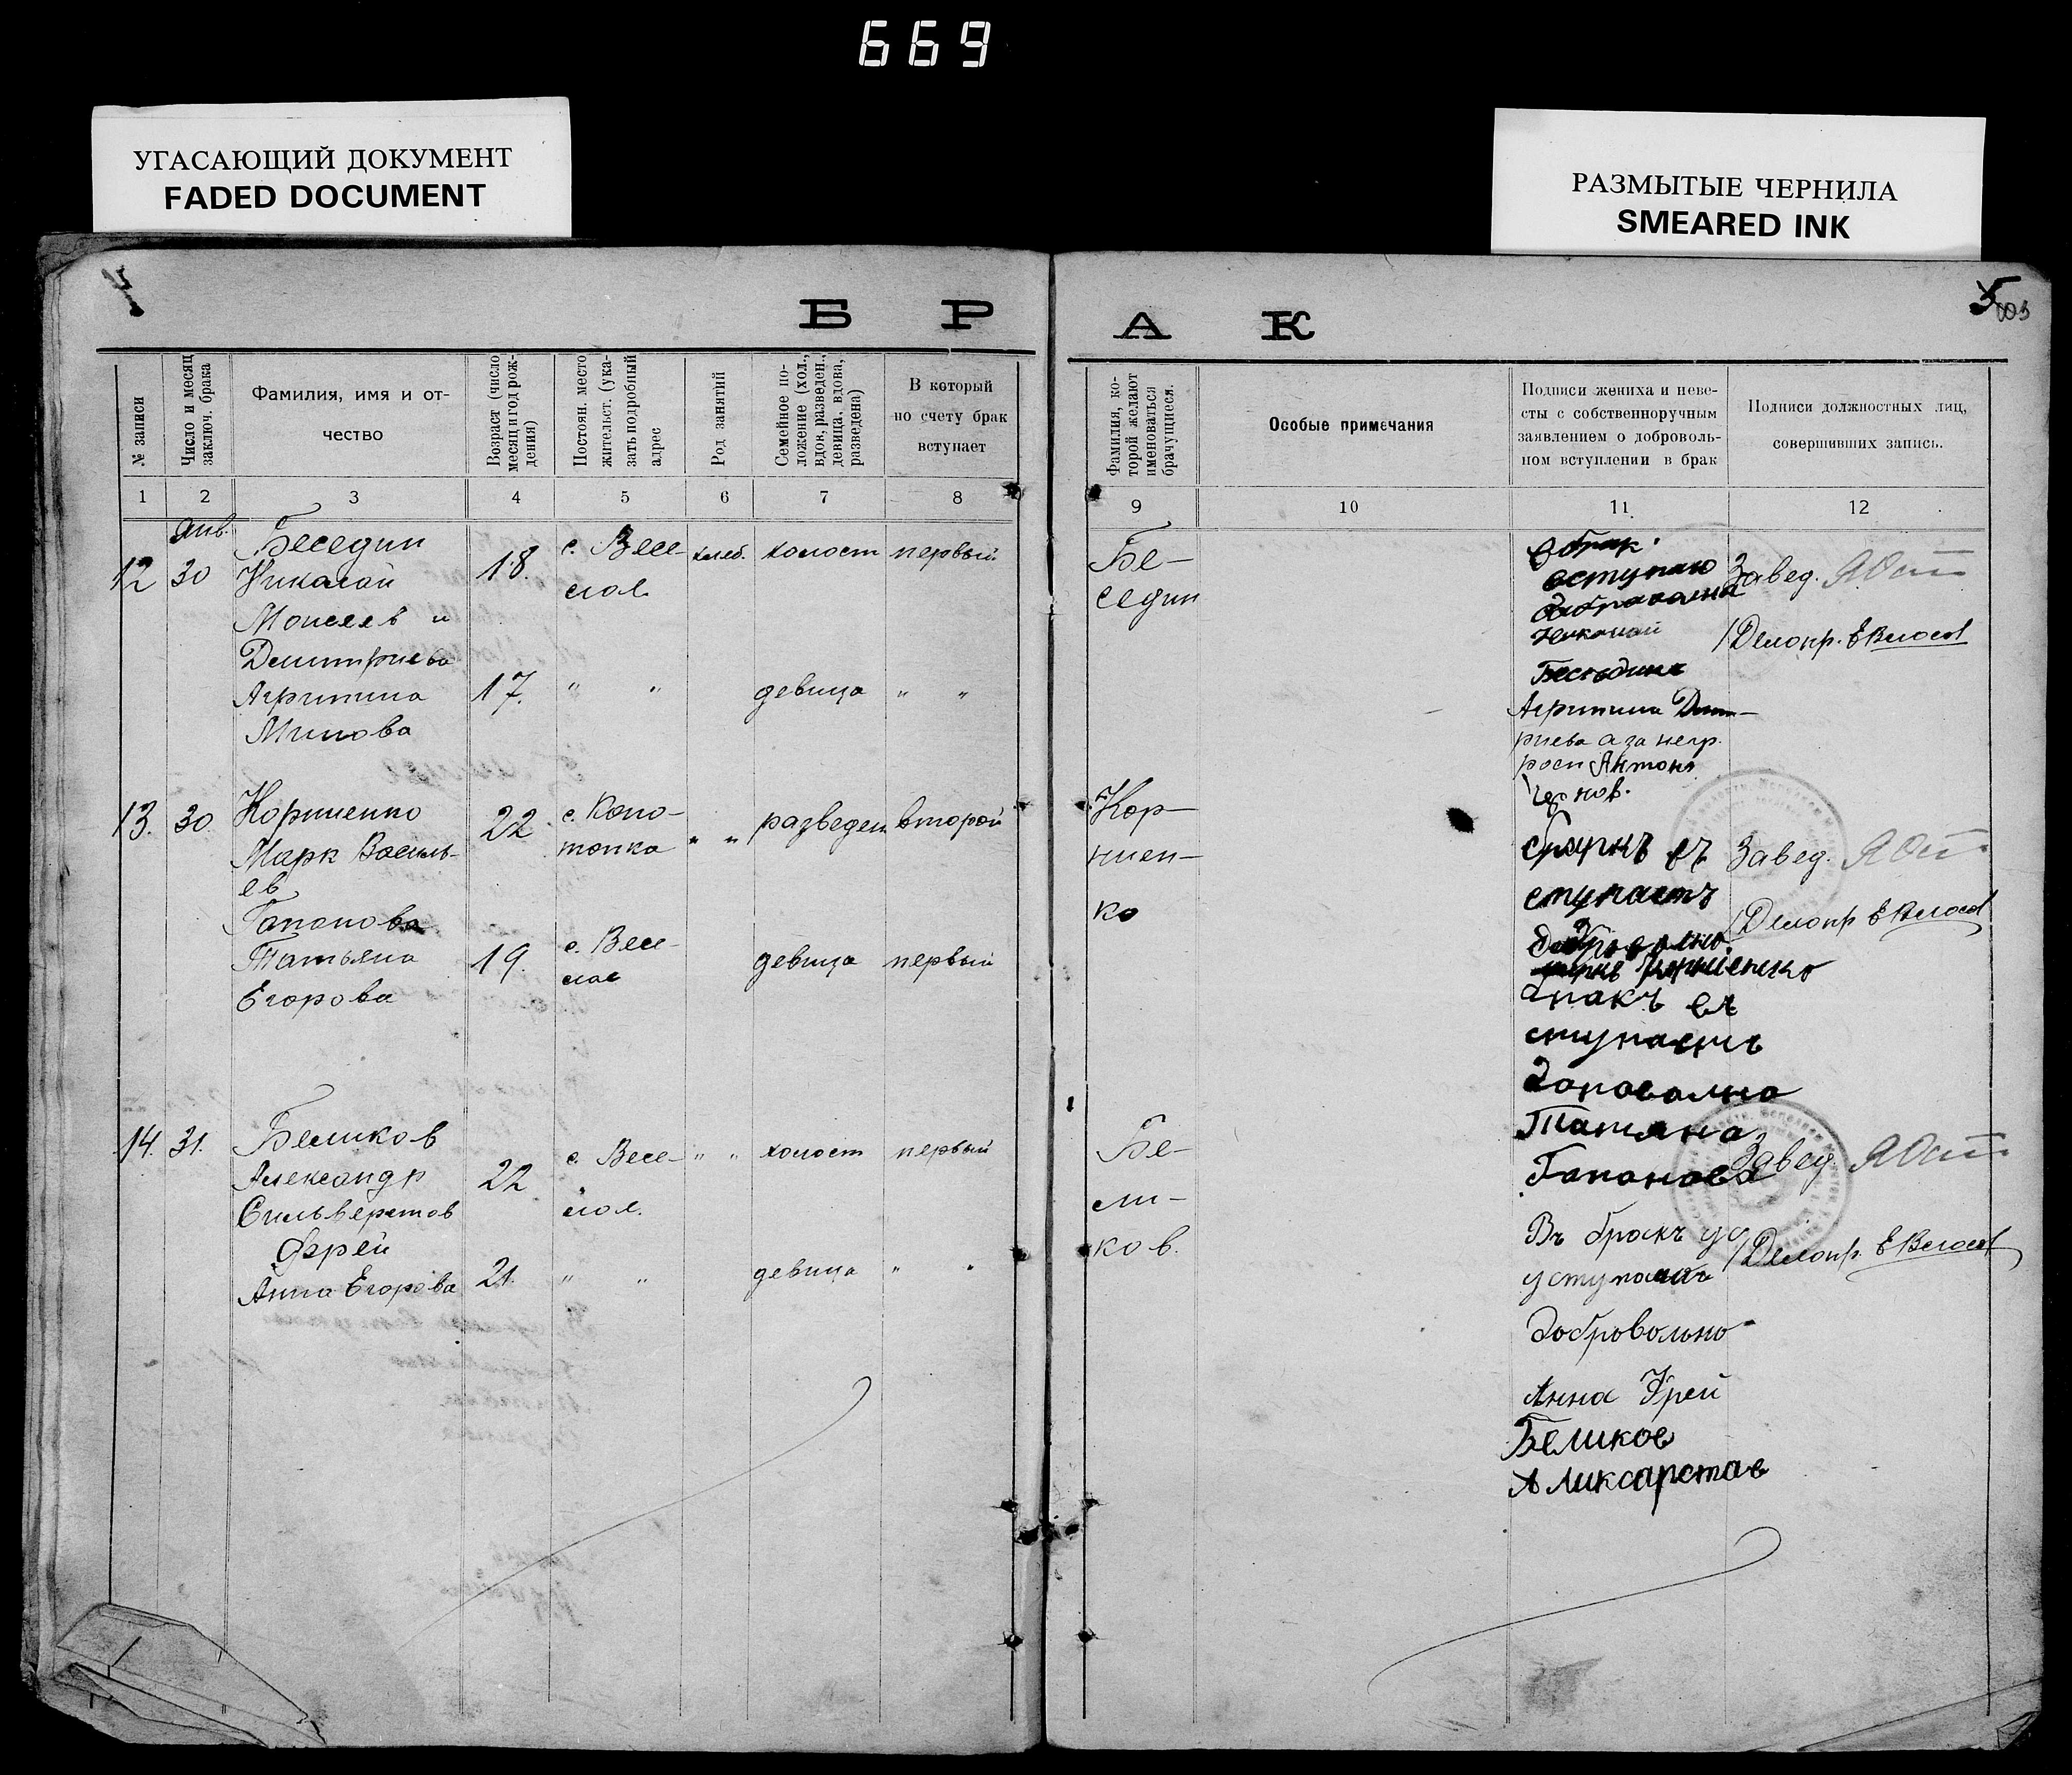 669
УГАСАЮЩИЙ ДОКУМЕНТ
FADED DOCUMENT
РАЗМЫТЫЕ ЧЕРНИЛА
SMEARED INK
5
Б Р А К
№ записи
Число и месяц
заключ. брака
Фамилия, имя и от-
чество
Возраст (число
месяц и год рож-
дения)
Постоян. место
жительст. (ука-
зать подробный
адрес
Род занятий
Семейное по-
ложение (хол.,
вдов, разведен.,
девица, вдова,
разведена)
В который
по счету брак
вступает
Фамилия, ко-
торой желают
именоваться
брачущиеся.
Особые примечания
Подписи жениха и неве-
сты с собственноручным
заявлением о доброволь-
ном вступлении в брак
Подписи должностных лиц,
совершивших запись.
1 2 3 4 5 6 7 8 9 10 11 12
12
Янв.
30
Беседин
Николай
Моисеев и
Дмитриева
Агрипина
Минова
18.
17.
с. Весе-
лое
" "
хлеб.
холост
девица
первый
" "
Бе-
седин
В брак
вступаю
Николай
Агрипина Дмит-
риева а за негр.
росп Антон
Завед.
Делопр.
13.
30
Корниенко
Марк Василь-
ев
Гапонова
Татьяна
Егорова
22
19.
с. Коно-
топка
с. Весе-
лое
" "
разведен
девица
второй
первый
Кор-
ниен-
ко
ступаетъ
Корниенко
ступаетъ
Татяна
Гапонова
Завед.
Делопр
14.
31.
Беликов
Александр
Сильверстов
Фрей
Анна Егорова
22
21.
с. Весе-
лое.
" "
" "
холост
девица
первый
"
Бе-
ли-
ков.
Въ бракъ
Добровольно
Анна Фрей
Беликов
Завед
Делопр.